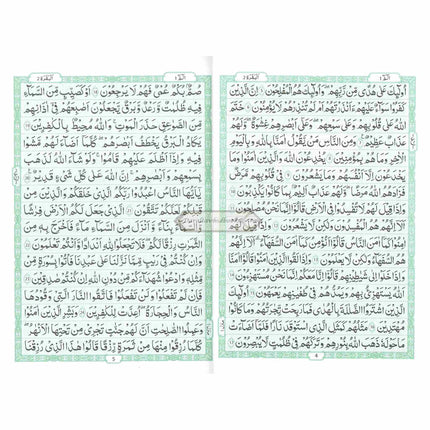 البقرة ٢
الٓمّٓ ١
اُولٰٓئِكَ عَلٰى هُدًى مِّنْ رَّبِّهِمْ وَاُولٰٓئِكَ هُمُ الْمُفْلِحُوْنَ ۝ اِنَّ الَّذِيْنَ
كَفَرُوْا سَوَآءٌ عَلَيْهِمْ ءَاَنْذَرْتَهُمْ اَمْ لَمْ تُنْذِرْهُمْ لَا يُؤْمِنُوْنَ ۝ خَتَمَ
اللّٰهُ عَلٰى قُلُوْبِهِمْ وَعَلٰى سَمْعِهِمْ وَعَلٰٓى اَبْصَارِهِمْ غِشَاوَةٌ وَّلَهُمْ
عَذَابٌ عَظِيْمٌ ۝ وَمِنَ النَّاسِ مَنْ يَّقُوْلُ اٰمَنَّا بِاللّٰهِ وَبِالْيَوْمِ
الْاٰخِرِ وَمَا هُمْ بِمُؤْمِنِيْنَ ۝ يُخٰدِعُوْنَ اللّٰهَ وَالَّذِيْنَ اٰمَنُوْا وَمَا
يَخْدَعُوْنَ اِلَّآ اَنْفُسَهُمْ وَمَا يَشْعُرُوْنَ ۝ فِيْ قُلُوْبِهِمْ مَّرَضٌ
فَزَادَهُمُ اللّٰهُ مَرَضًا وَلَهُمْ عَذَابٌ اَلِيْمٌ بِمَا كَانُوْا يَكْذِبُوْنَ ۝
وَاِذَا قِيْلَ لَهُمْ لَا تُفْسِدُوْا فِي الْاَرْضِ قَالُوْٓا اِنَّمَا نَحْنُ مُصْلِحُوْنَ ۝
اَلَآ اِنَّهُمْ هُمُ الْمُفْسِدُوْنَ وَلٰكِنْ لَّا يَشْعُرُوْنَ ۝ وَاِذَا قِيْلَ لَهُمْ
اٰمِنُوْا كَمَآ اٰمَنَ النَّاسُ قَالُوْٓا اَنُؤْمِنُ كَمَآ اٰمَنَ السُّفَهَآءُ اَلَآ اِنَّهُمْ
هُمُ السُّفَهَآءُ وَلٰكِنْ لَّا يَعْلَمُوْنَ ۝ وَاِذَا لَقُوا الَّذِيْنَ اٰمَنُوْا قَالُوْٓا اٰمَنَّا
وَاِذَا خَلَوْا اِلٰى شَيٰطِيْنِهِمْ قَالُوْٓا اِنَّا مَعَكُمْ اِنَّمَا نَحْنُ مُسْتَهْزِءُوْنَ ۝
اَللّٰهُ يَسْتَهْزِئُ بِهِمْ وَيَمُدُّهُمْ فِيْ طُغْيَانِهِمْ يَعْمَهُوْنَ ۝ اُولٰٓئِكَ
الَّذِيْنَ اشْتَرَوُا الضَّلٰلَةَ بِالْهُدٰى فَمَا رَبِحَتْ تِّجَارَتُهُمْ وَمَا كَانُوْا
مُهْتَدِيْنَ ۝ مَثَلُهُمْ كَمَثَلِ الَّذِي اسْتَوْقَدَ نَارًا فَلَمَّآ اَضَآءَتْ
مَا حَوْلَهٗ ذَهَبَ اللّٰهُ بِنُوْرِهِمْ وَتَرَكَهُمْ فِيْ ظُلُمٰتٍ لَّا يُبْصِرُوْنَ ۝
4
البقرة ٢
الٓمّٓ ١
صُمٌّۢ بُكْمٌ عُمْيٌ فَهُمْ لَا يَرْجِعُوْنَ ۝ اَوْ كَصَيِّبٍ مِّنَ السَّمَآءِ
فِيْهِ ظُلُمٰتٌ وَّرَعْدٌ وَّبَرْقٌ يَجْعَلُوْنَ اَصَابِعَهُمْ فِيْٓ اٰذَانِهِمْ
مِّنَ الصَّوَاعِقِ حَذَرَ الْمَوْتِ وَاللّٰهُ مُحِيْطٌۢ بِالْكٰفِرِيْنَ ۝
يَكَادُ الْبَرْقُ يَخْطَفُ اَبْصَارَهُمْ كُلَّمَآ اَضَآءَ لَهُمْ مَّشَوْا
فِيْهِ وَاِذَآ اَظْلَمَ عَلَيْهِمْ قَامُوْا وَلَوْ شَآءَ اللّٰهُ لَذَهَبَ
بِسَمْعِهِمْ وَاَبْصَارِهِمْ اِنَّ اللّٰهَ عَلٰى كُلِّ شَيْءٍ قَدِيْرٌ ۝
يٰٓاَيُّهَا النَّاسُ اعْبُدُوْا رَبَّكُمُ الَّذِيْ خَلَقَكُمْ وَالَّذِيْنَ مِنْ
قَبْلِكُمْ لَعَلَّكُمْ تَتَّقُوْنَ ۝ الَّذِيْ جَعَلَ لَكُمُ الْاَرْضَ فِرَاشًا
وَّالسَّمَآءَ بِنَآءً وَّاَنْزَلَ مِنَ السَّمَآءِ مَآءً فَاَخْرَجَ بِهٖ مِنَ
الثَّمَرٰتِ رِزْقًا لَّكُمْ فَلَا تَجْعَلُوْا لِلّٰهِ اَنْدَادًا وَّاَنْتُمْ تَعْلَمُوْنَ ۝
وَاِنْ كُنْتُمْ فِيْ رَيْبٍ مِّمَّا نَزَّلْنَا عَلٰى عَبْدِنَا فَاْتُوْا بِسُوْرَةٍ مِّنْ
مِّثْلِهٖ وَادْعُوْا شُهَدَآءَكُمْ مِّنْ دُوْنِ اللّٰهِ اِنْ كُنْتُمْ صٰدِقِيْنَ ۝
فَاِنْ لَّمْ تَفْعَلُوْا وَلَنْ تَفْعَلُوْا فَاتَّقُوا النَّارَ الَّتِيْ وَقُوْدُهَا
النَّاسُ وَالْحِجَارَةُ اُعِدَّتْ لِلْكٰفِرِيْنَ ۝ وَبَشِّرِ الَّذِيْنَ اٰمَنُوْا
وَعَمِلُوا الصّٰلِحٰتِ اَنَّ لَهُمْ جَنّٰتٍ تَجْرِيْ مِنْ تَحْتِهَا الْاَنْهٰرُ
كُلَّمَا رُزِقُوْا مِنْهَا مِنْ ثَمَرَةٍ رِّزْقًا قَالُوْا هٰذَا الَّذِيْ رُزِقْنَا
5